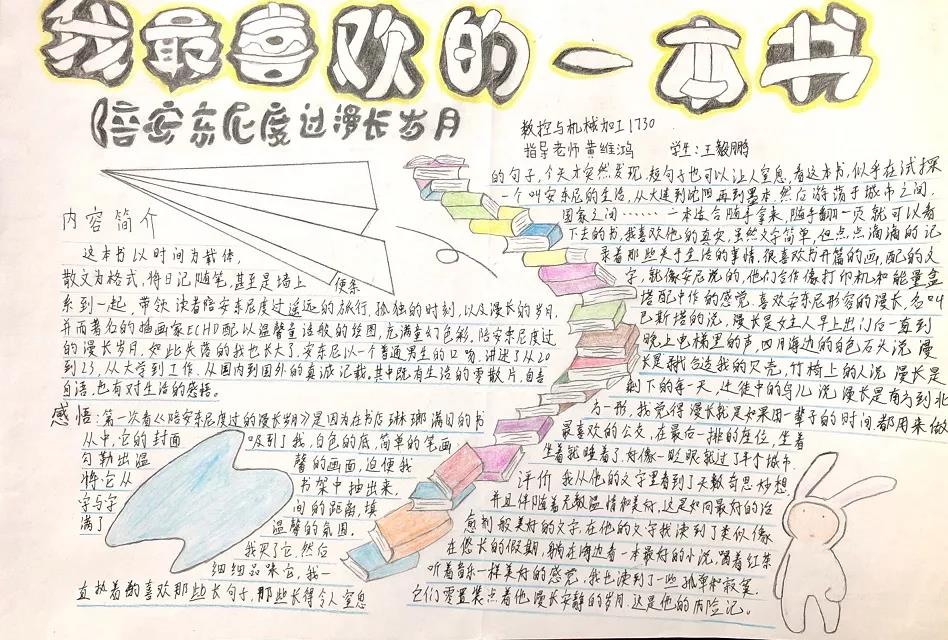 我最喜欢的一本书
陪安东尼度过漫长岁月
数控与机械加工1730
指导老师 黄维鸿 学生：王毅鹏
内容简介
这本书以时间为载体，
散文为格式，将日记随笔，甚至是墙上便条
系到一起，带领读者陪安东尼度过遥远的旅行，孤独的时刻，以及漫长的岁月，
并而著名的插画家ECHO配以温馨童话般的绘图，充满童幻色彩，陪安东尼度过
的漫长岁月，如此失落的我也长大了，安东尼以一个普通男生的口吻，讲述了从20
到23，从大学到工作，从国内到国外的真诚记载，其中既有生活的零散片，自言
自语，也有对生活的感悟。
感悟：第一次看《陪安东尼度过的漫长岁月》是因为在书店琳琅满目的书
从中，它的封面吸引到了我，白色的底，简单的笔画
勾勒出温馨的画面，迫使我
将它从书架中抽出来，
字与字间的距离，填
满了温馨的氛围。
我买了它，然后
细细品味它，我一
直执着的喜欢那些长句子，那些长得令人窒息
的句子，今天才突然发现，短句子也可以让人窒息，看这本书，似乎在试探
一个叫安东尼的生活，从大连到沈阳再到墨本，然后游荡于城市之间，
国家之间……一本适合随手拿来，随手翻一页就可以看
下去的书，我喜欢他的真实，虽然文字简单，但点点滴滴的记
录着那些关于生活的事情，很喜欢书开篇的画，配的文
字，就像安尼说的，他们合作像打印机和能量盒
搭配中作的感觉，喜欢安东尼形容的漫长，名叫
巴斯塔的说，漫长是女主人早上出门后一直到
晚上电梯里的声，四月海边的白色石头说，漫
长是我合适我的贝壳，竹椅上的人说，漫长是
剩下的每一天，迁徙中的鸟儿说，漫长是南方到北
方一形，我觉得漫长就是如果用一辈子的时间都用来做
最喜欢的公交，在最后一排的座位，坐着
坐着就睡着了，好像一眨眼就过了半个城市。
评价 我从他的文字里看到了天数奇思妙想，
并且伴随着无数温情和美好，这是如同最好的治
愈剂般美好的文字，在他的文字我读到了类似像
在悠长的假期，躺在海边看一本最好的小说，喝着红茶
听着音乐一样美好的感觉，我也读到了一些孤单和寂寞，
它们零星装点着他漫长安静的岁月，这是他的内心记。